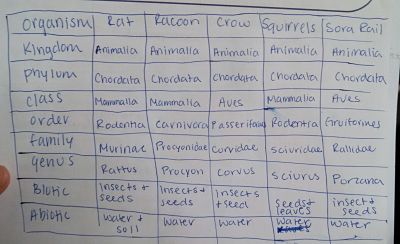 organism Rat Racoon Crow Squirrels Sora Rail
Kingdom Animalia Animalia Animalia Animalia Animalia
phylum Chordata Chordata Chordata Chordata Chordata
class Mammalia Mammalia Aves Mammalia Aves
order Rodentia Carnivora Passeriforms Rodentra Gruiformes
family Murinae Procyonidae Corvidae sciuridae Rallidae
genus Rattus Procyon corvus sciurus Porzana
Biotic insects + seeds insects + seeds insects + seed seeds + leaves insect + seeds
Abiotic water + soil water water water water